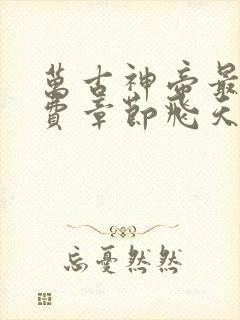 萬古神帝最
費章節飛天
忘憂然然